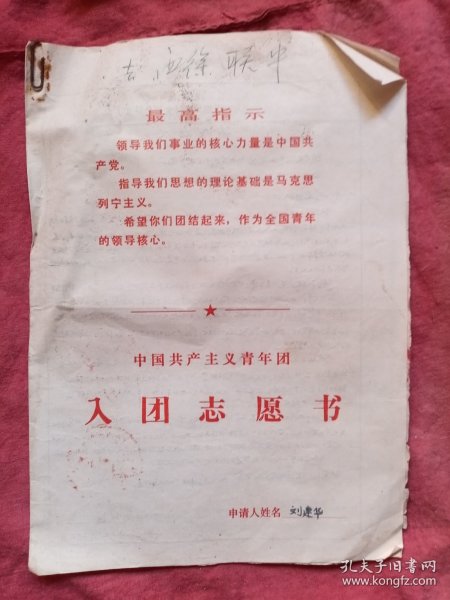 联中
最高指示
领导我们事业的核心力量是中国共
产党。
指导我们思想的理论基础是马克思
列宁主义。
希望你们团结起来，作为全国青年
的领导核心。
中国共产主义青年团
入团志愿书
申请人姓名 刘建华
孔夫子旧书网
www.kongfz.com